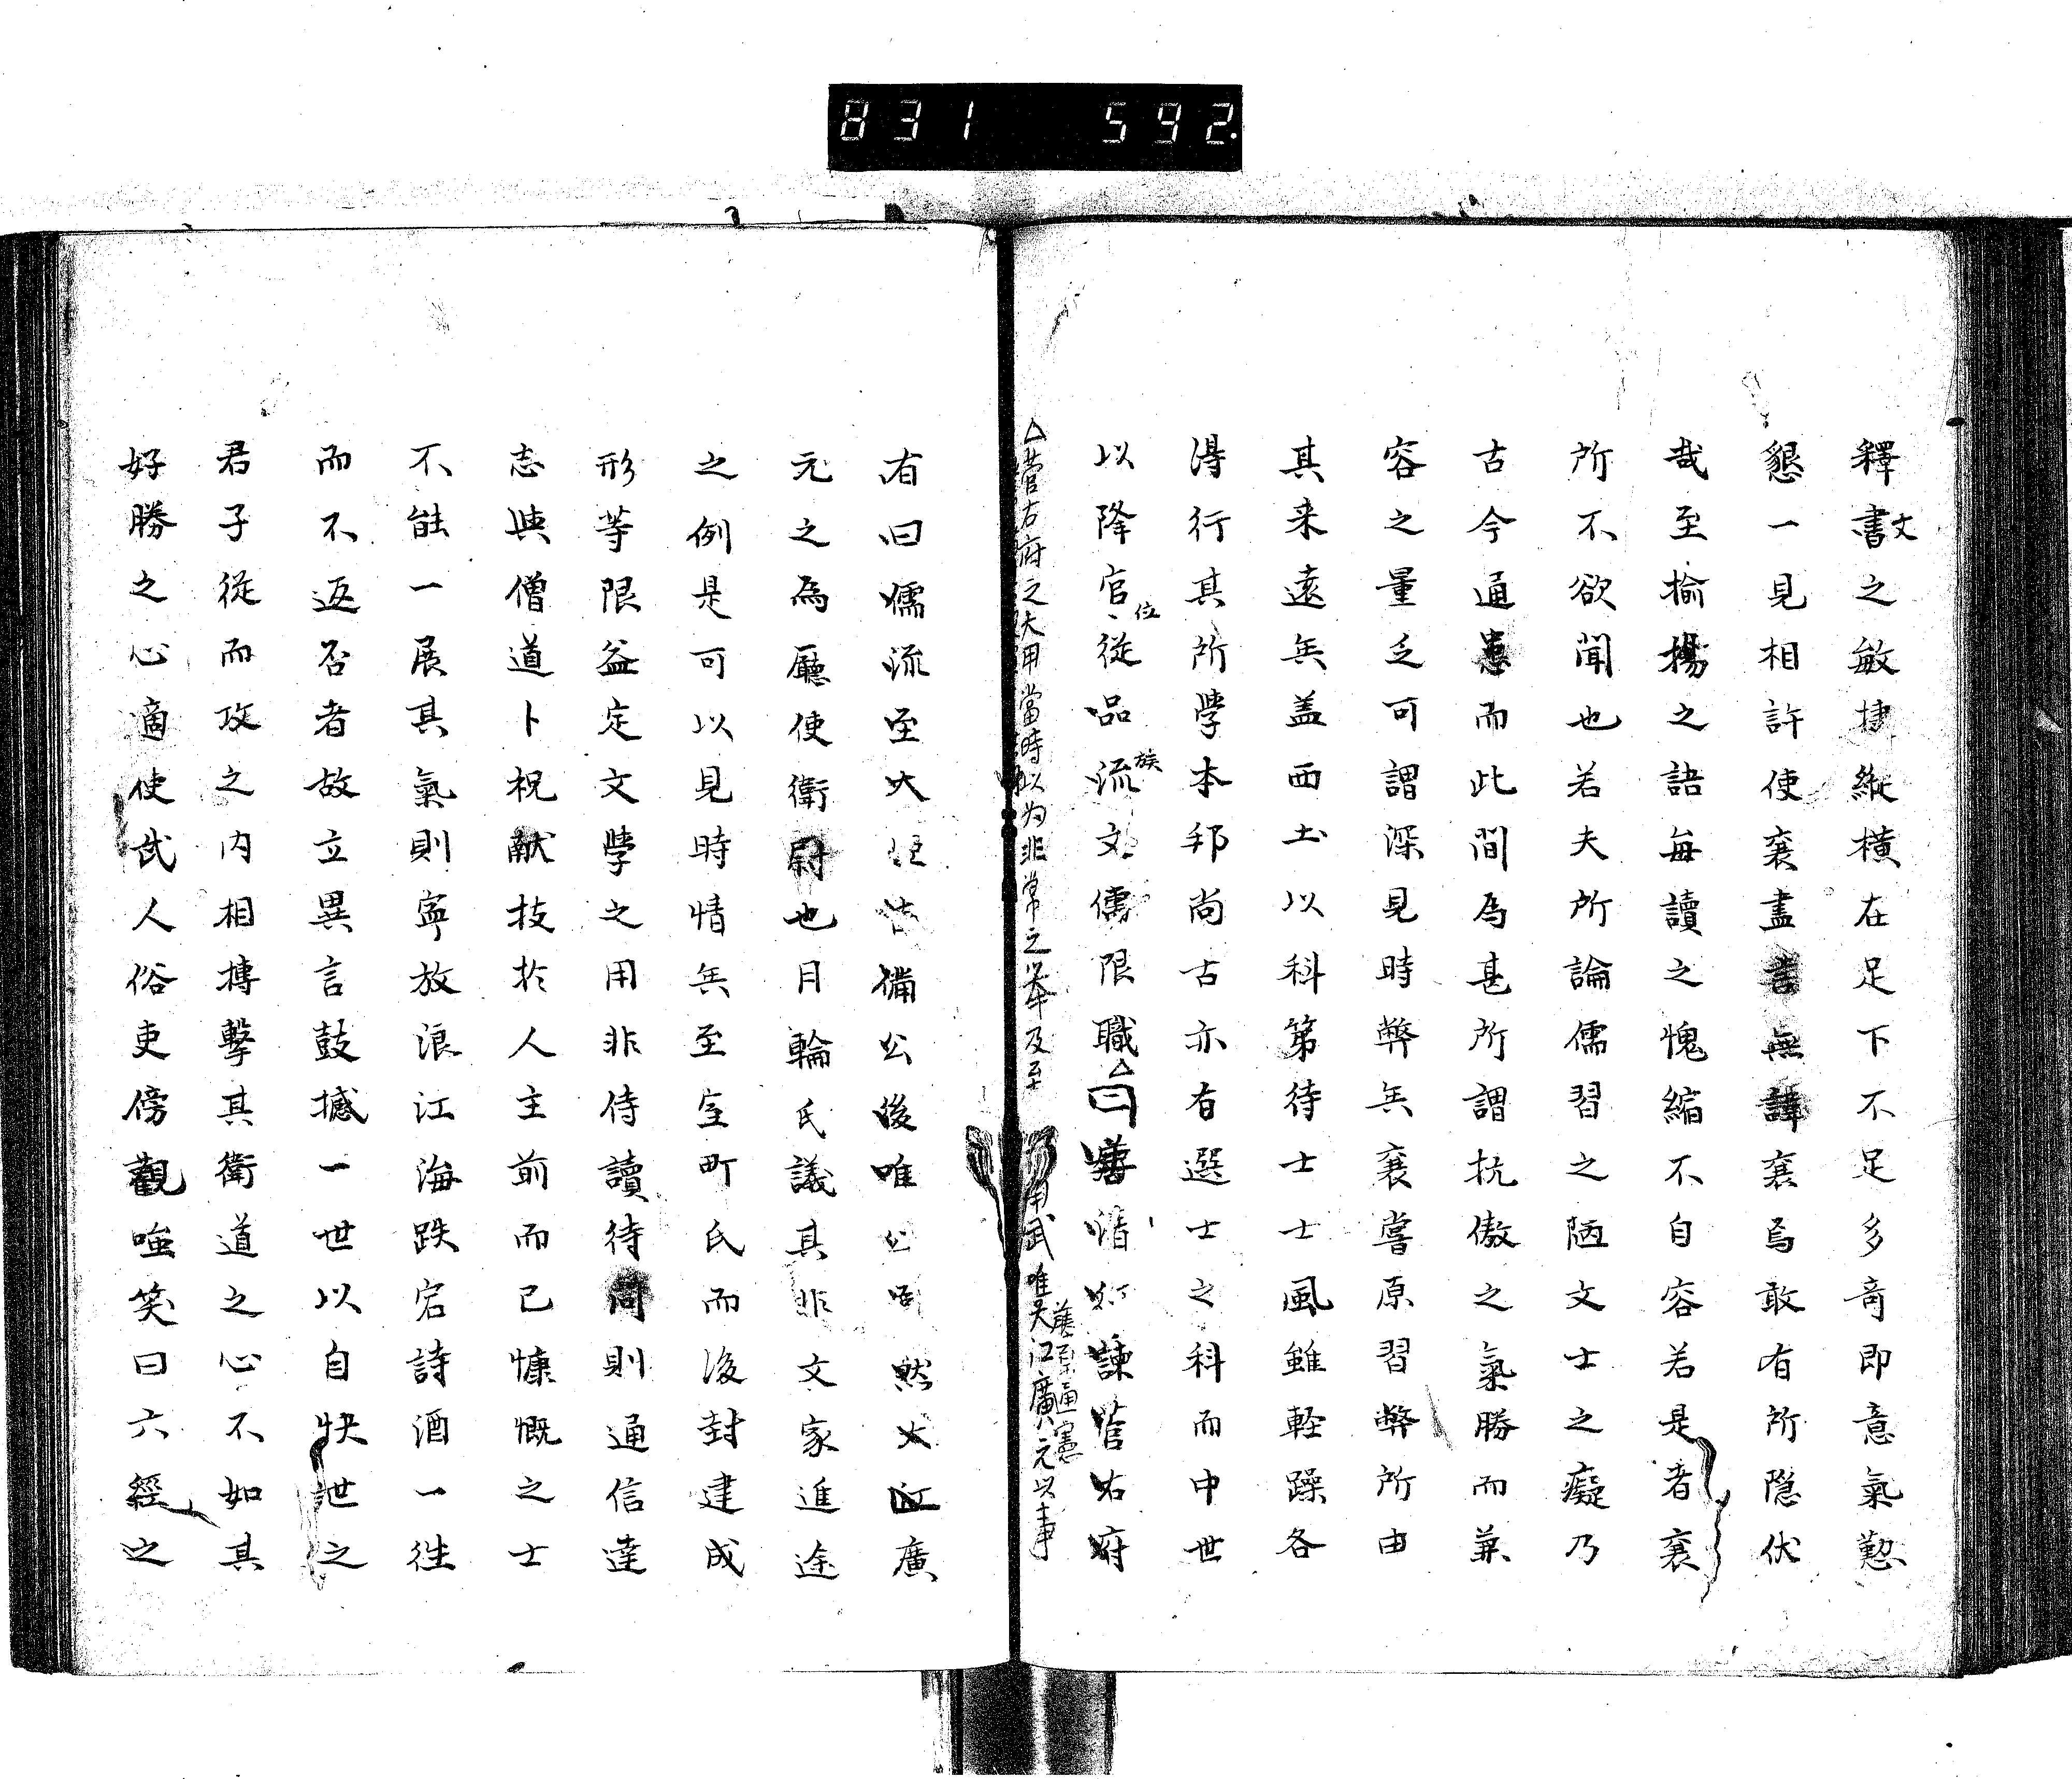 831 592
釋書文之敏捷縱横在足下不足多竒即意氣懃
懇一見相許使襄盡言無諱襄烏敢有所隐伏
哉至揄揚之語毎讀之愧縮不自容若是者襄
所不欲聞也若夫所論儒習之陋文士之癡乃
古今通患而此間為甚所謂抗傲之氣勝而兼
容之量乏可謂深見時弊矣襄嘗原習弊所由
其来遠矣盖西土以科第待士士風雖輕躁各
得行其所學本邦尚古亦有選士之科而中世
以降官位從品流族文儒限職
清 諫菅右府
△菅右府之大用當時以为非常之舉及至
用武唯
藤原通憲
大江廣元以事
有曰儒流至大 備公後唯公 然大江廣
元之為廳使衛尉也月輪氏議其非文家進途
之例是可以見時情矣至室町氏而後封建成
形等限益定文學之用非侍讀待問則通信達
志與僧道卜祝献技於人主前而已慷慨之士
不能一展其氣則寧放浪江海跌宕詩酒一徃
而不返否者故立異言鼓撼一世以自快世之
君子從而攻之内相搏擊其衛道之心不如其
好勝之心適使武人俗吏傍觀嗤笑曰六經之